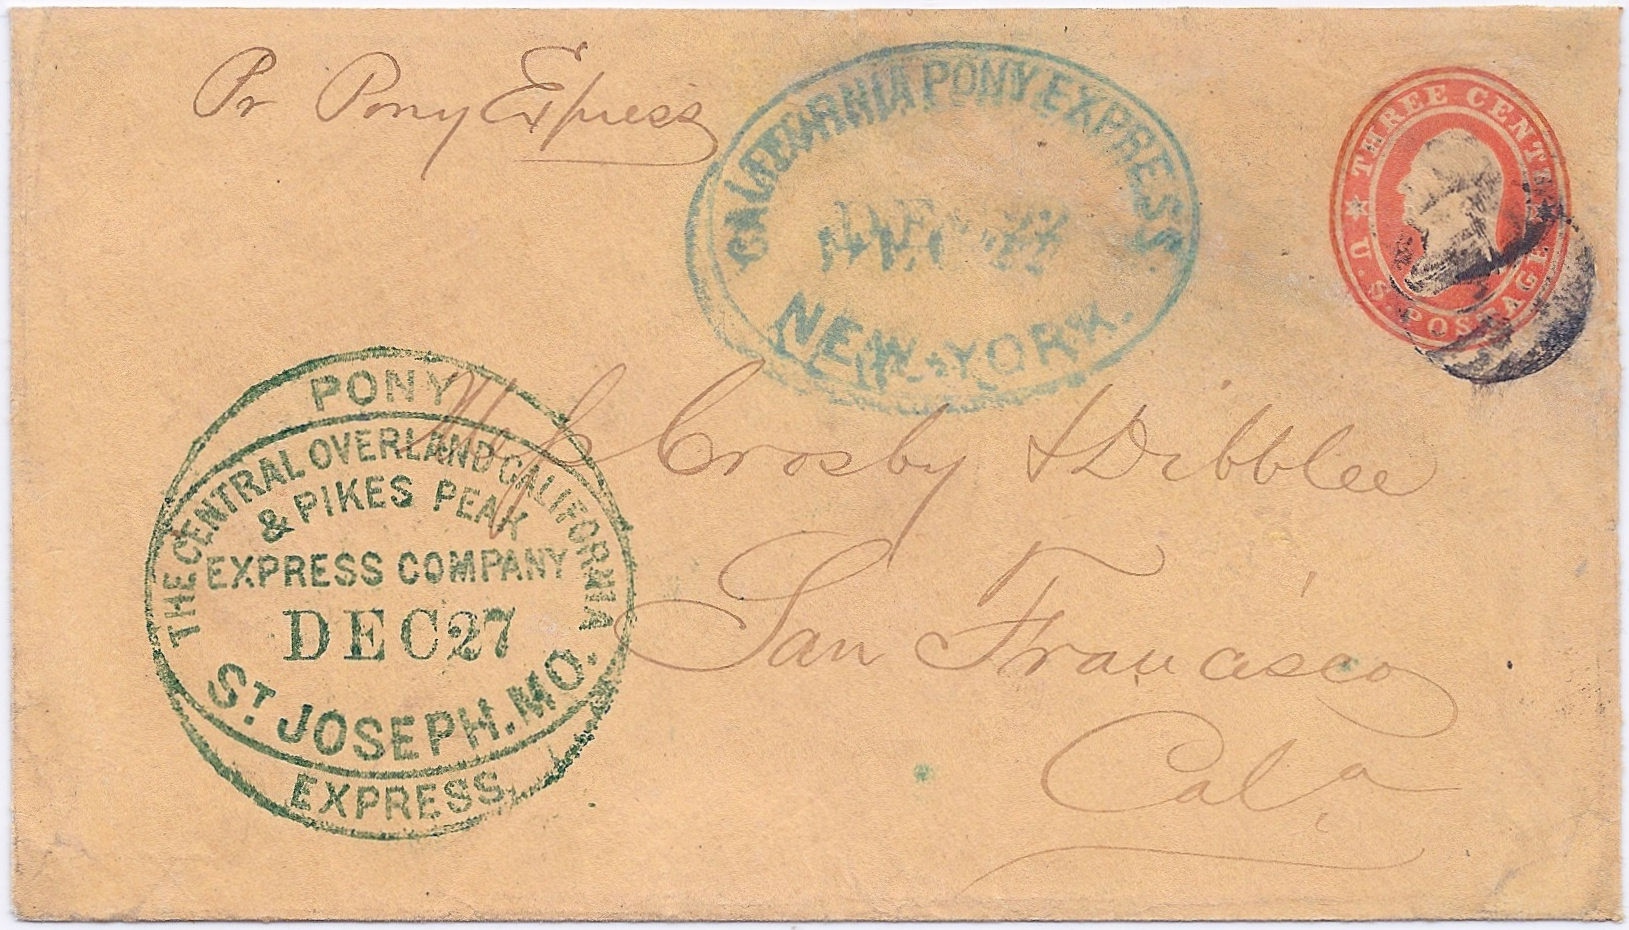 Pr Pony Express
CALIFORNIA PONY EXPRESS
NEW-YORK.
THREE CENTS
U.S. POSTAGE
Crosby & Dibblee
San Francisco
Cala
PONY
THE CENTRAL OVERLAND CALIFORNIA
& PIKES PEAK
EXPRESS COMPANY
DEC 27
ST. JOSEPH. MO.
EXPRESS